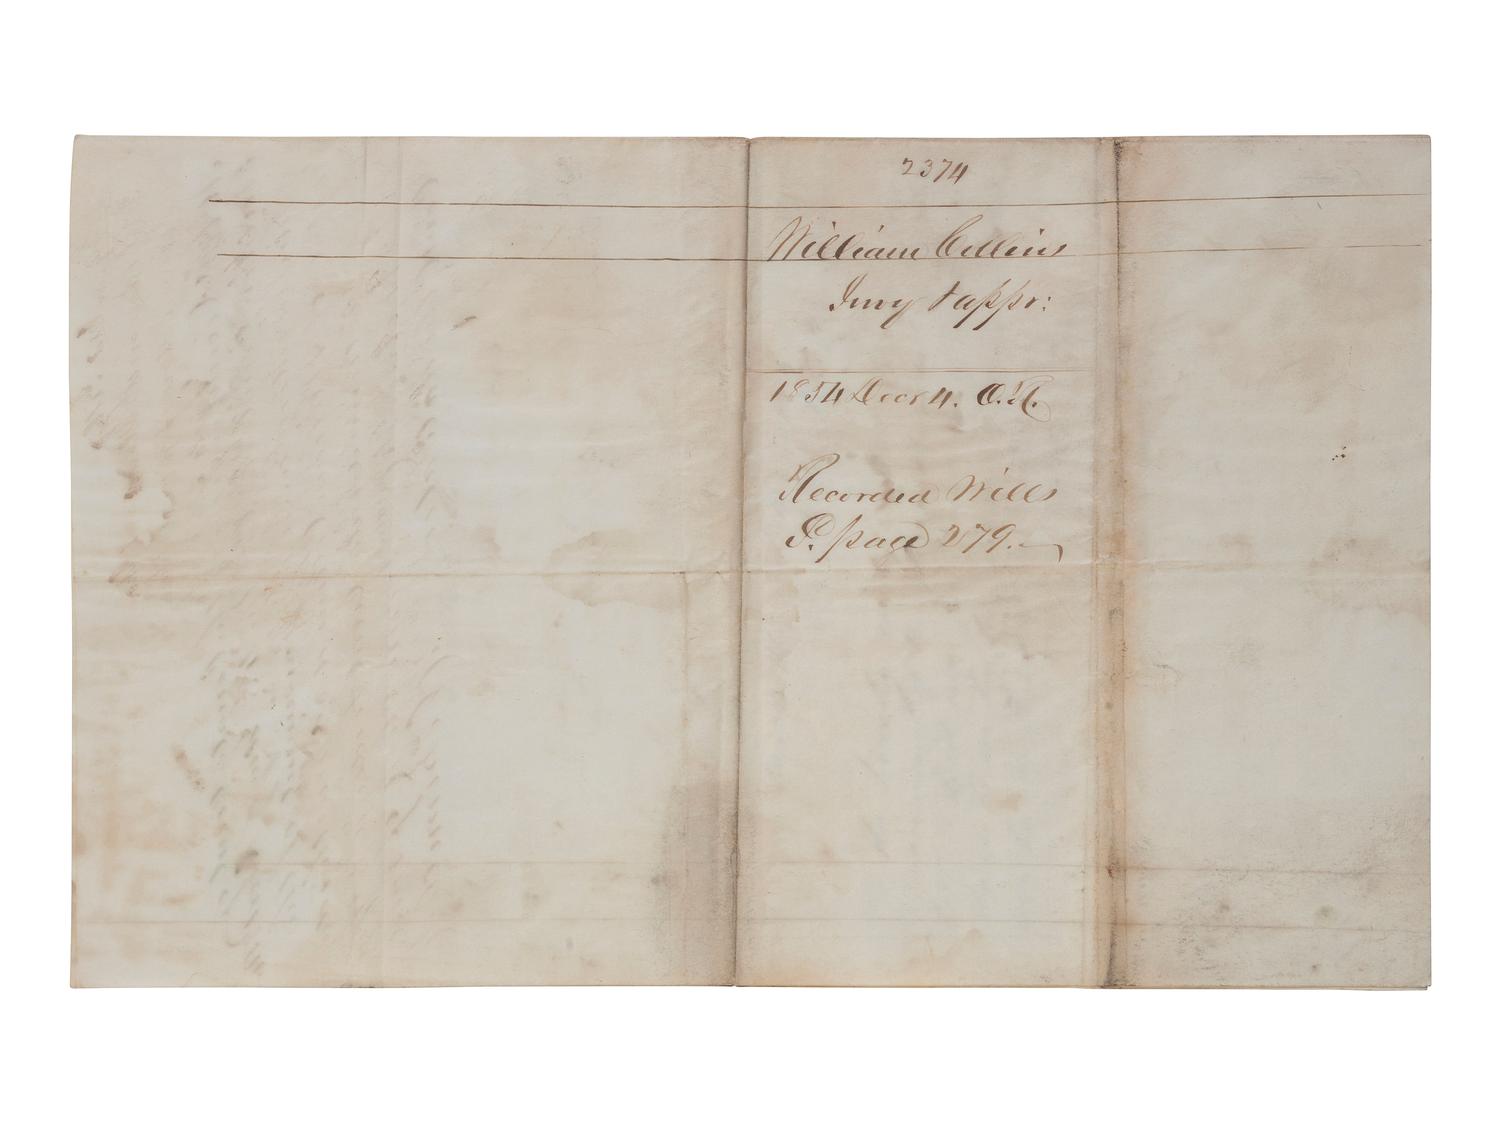 2374
William Collins
Invy & appr:
1854 Decr 4. O.R.
Recorded Wills
P. page 279.